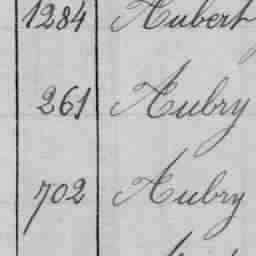 1284 Aubert
261 Aubry
702 Aubry